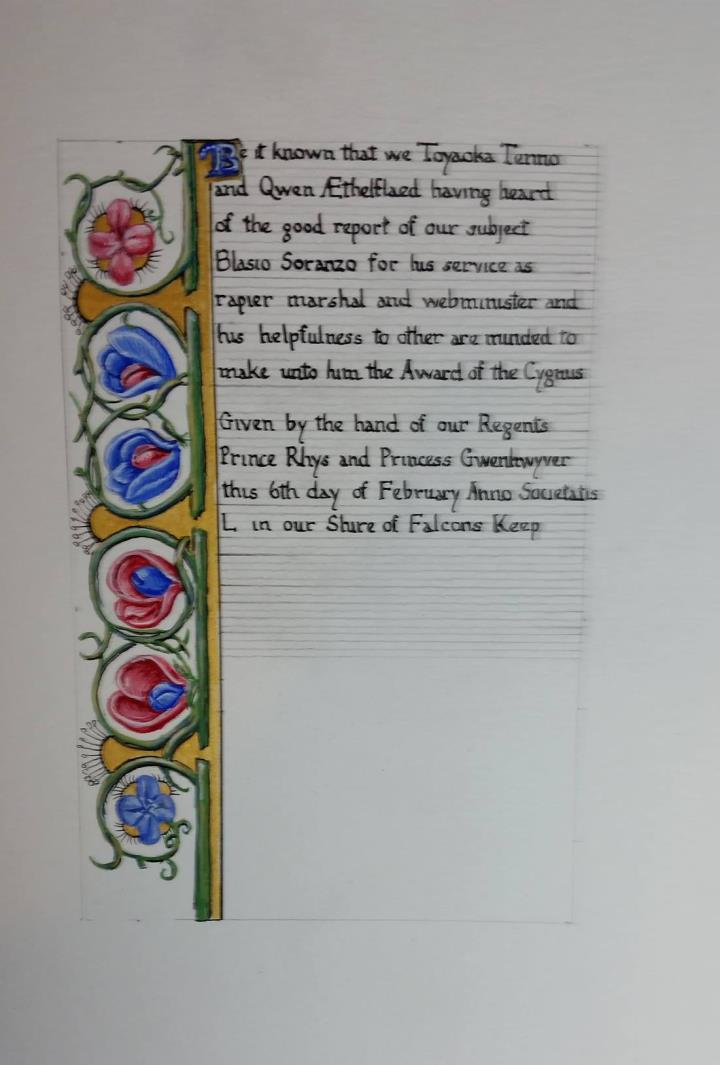 Be it known that we Toyaoka Tenno
and Qwen Æthelflaed having heard
of the good report of our subject
Blasio Soranzo for his service as
rapier marshal and webminister and
his helpfulness to other are minded to
make unto him the Award of the Cygnus
Given by the hand of our Regents
Prince Rhys and Princess Gwenhwyver
this 6th day of February Anno Societatis
L in our Shire of Falcons Keep